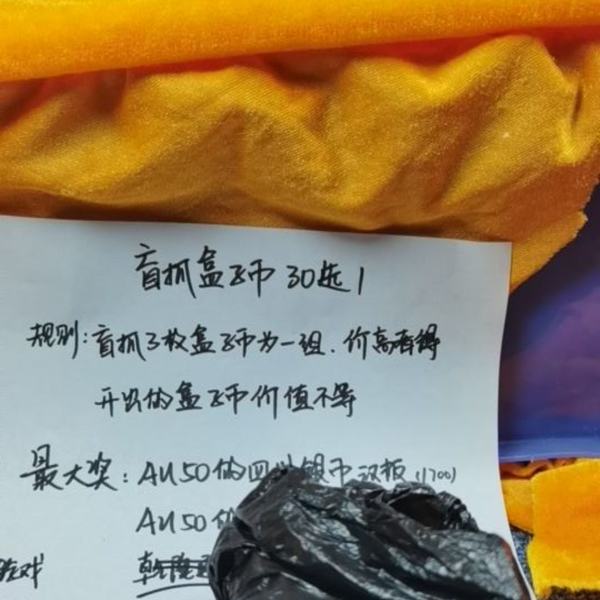 盲抓盒子币 30选1
规则:盲抓3枚盒子币为一组.价高者得
开出的盒子币价值不等
最大奖:AU50的四川银币汉板(1700)
AU50的
游戏 乾隆